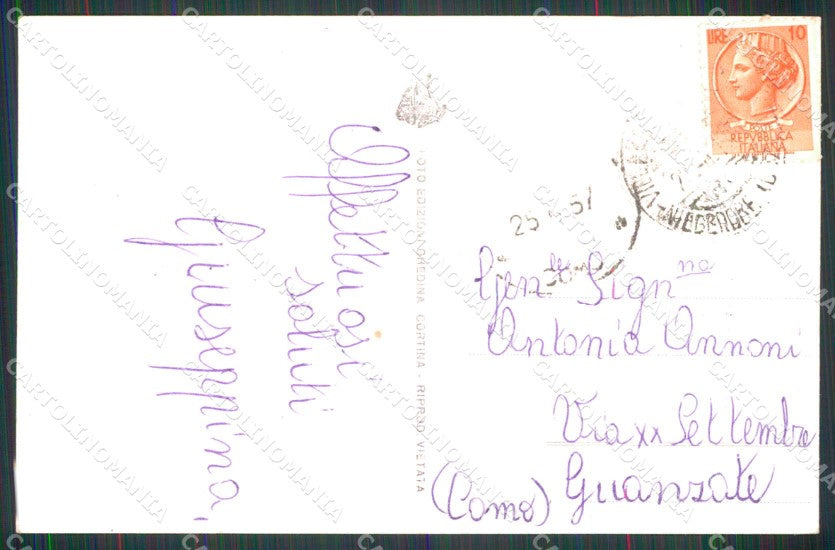 Affettuosi
saluti
Giuseppina,
FOTO EDIZ. GHEDINA CORTINA RIPROD VIETATA
LIRE 10
REPVBBLICA
ITALIANA
25 57
Gen.le Sign.na
Antonia Annoni
Via xx Settembre
Guanzate
(Como)
CARTOLINOMANIA